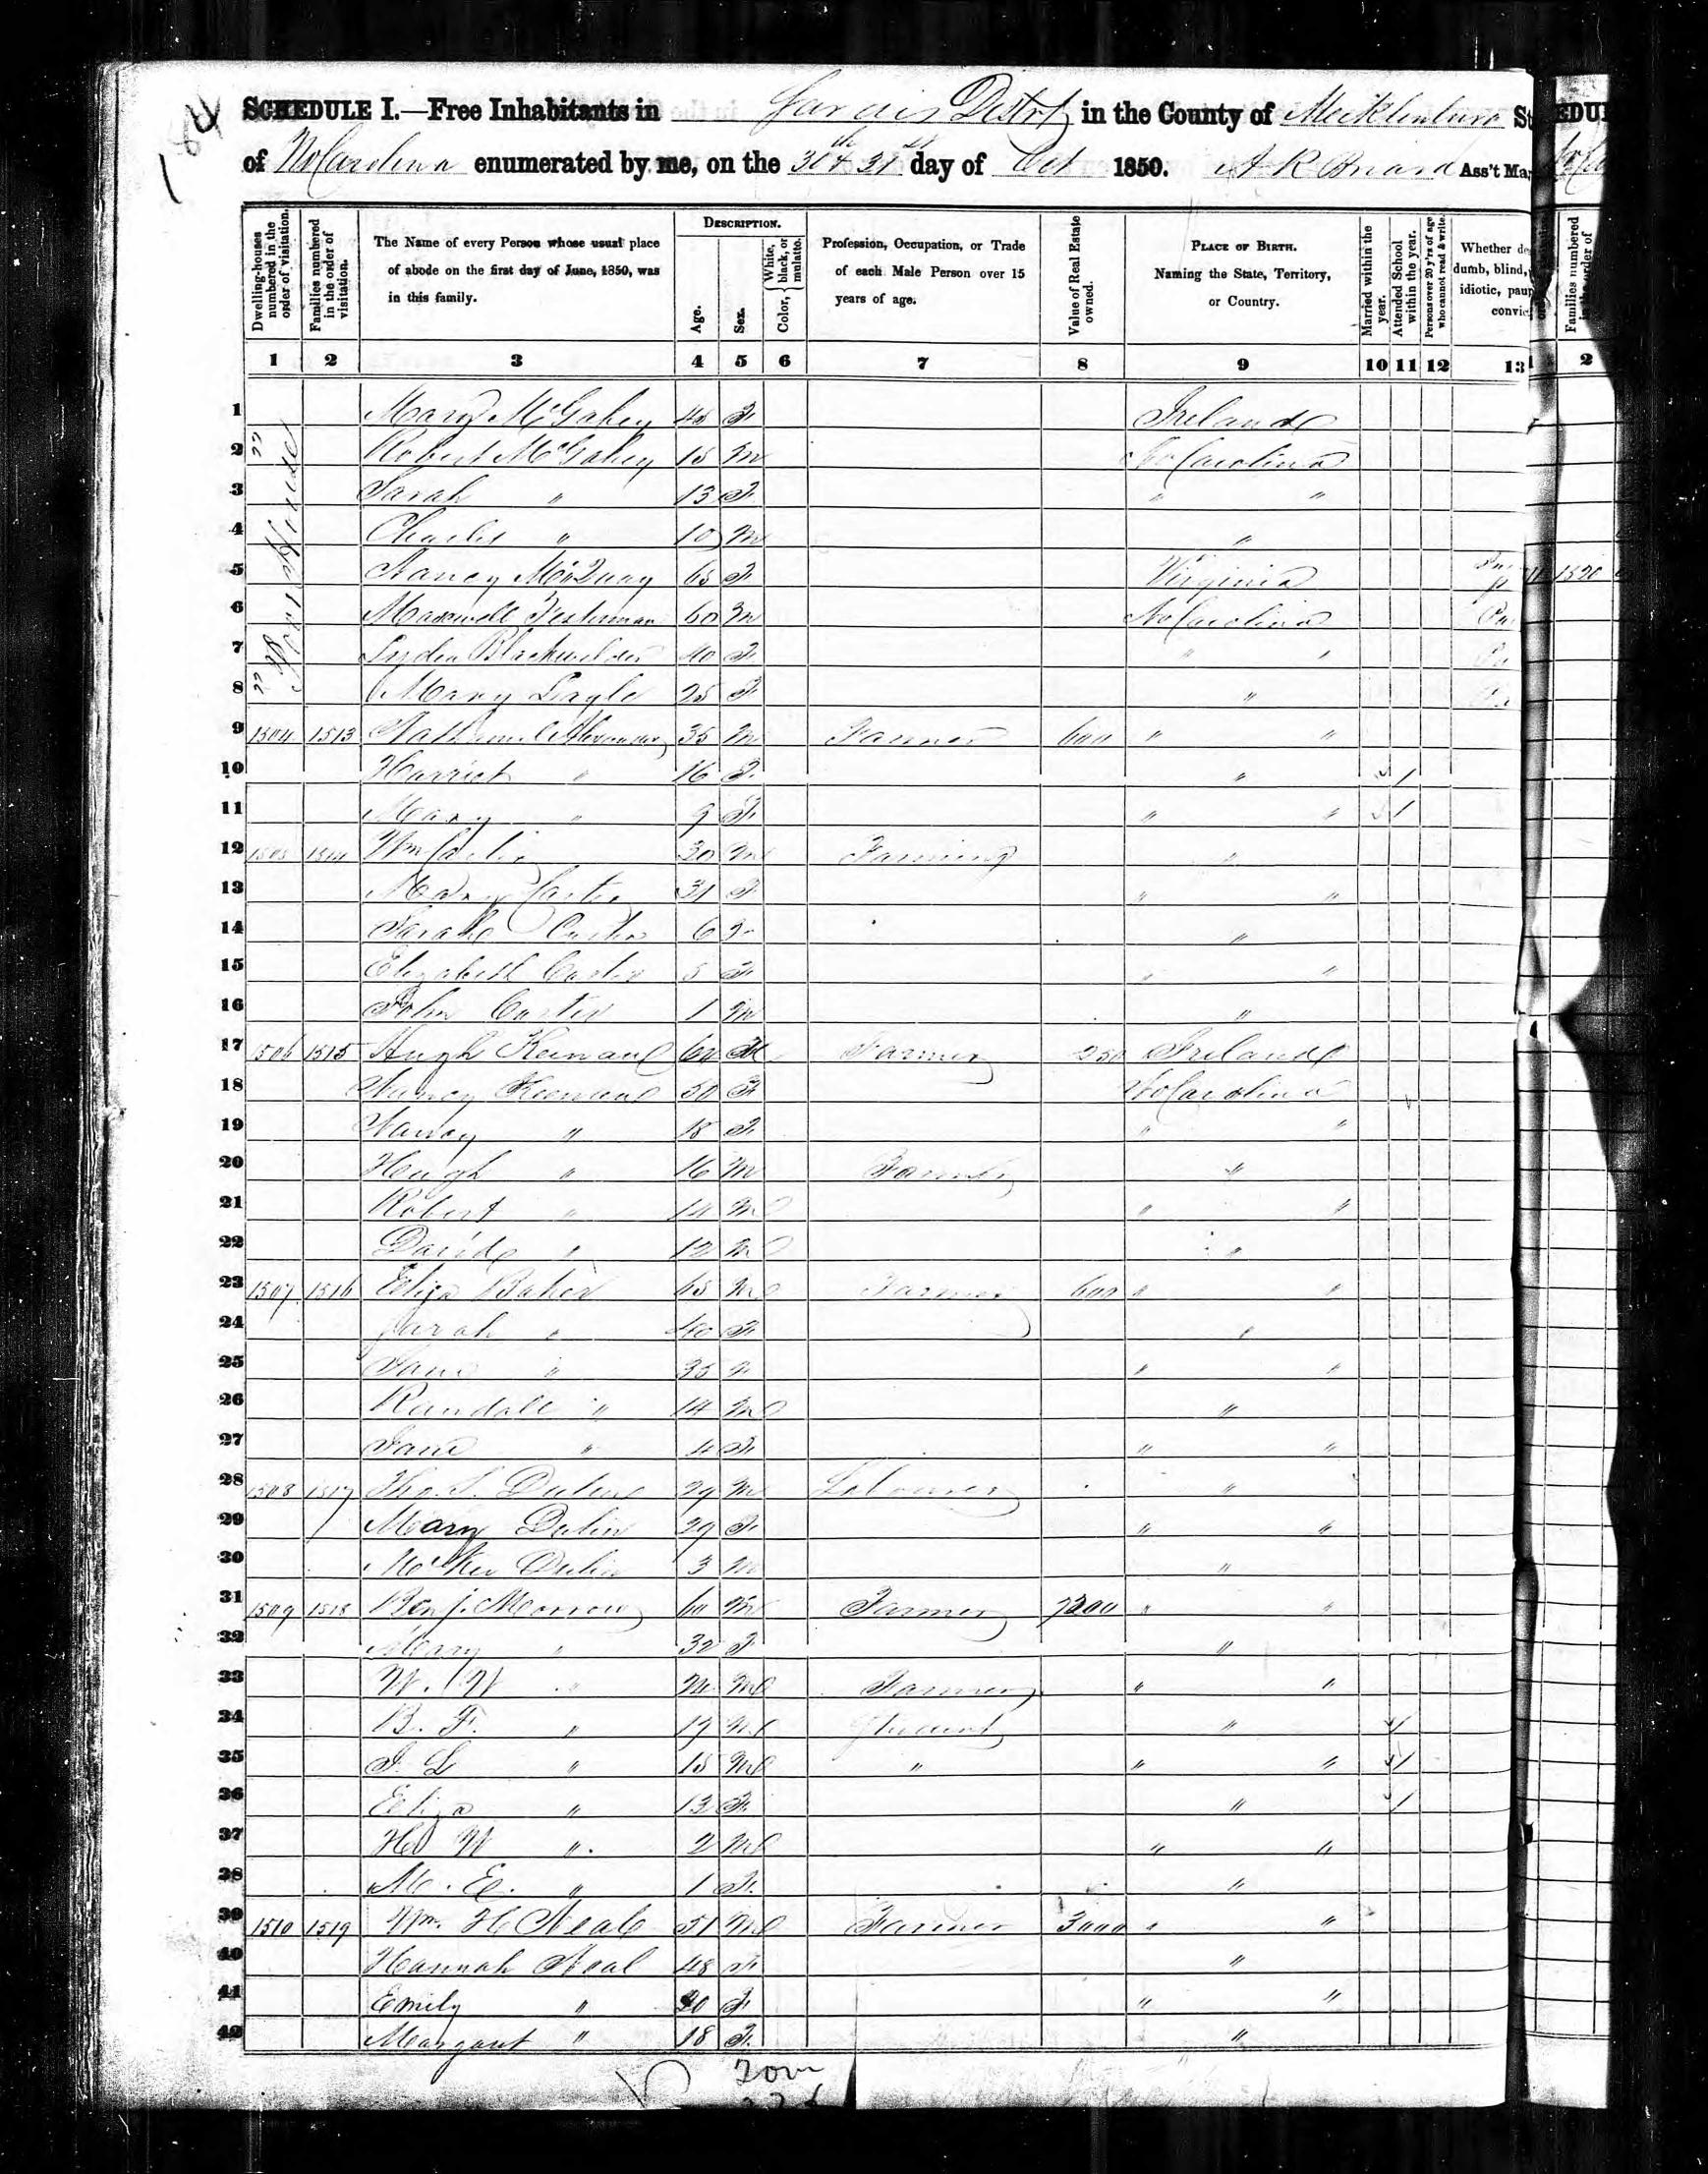 SCHEDULE I.—Free Inhabitants in Distrt in the County of Mecklenburg St EDUL
of No Carolina enumerated by me, on the 30th & 31st day of Oct 1850. Ass't Ma
Dwelling-houses numbered in the order of visitation. Families numbered in the order of visitation. The Name of every Person whose usual place of abode on the first day of June, 1850, was in this family. DESCRIPTION. Age. Sex. Color, White, black, or mulatto. Profession, Occupation, or Trade of each Male Person over 15 years of age. Value of Real Estate owned. PLACE OF BIRTH. Naming the State, Territory, or Country. Married within the year. Attended School within the year. Persons over 20 y'rs of age who cannot read & write. Whether de dumb, blind, idiotic, paup convic Families numbered in the order of
1 2 3 4 5 6 7 8 9 10 11 12 13 2
Poor House
1 Mary McGahey 45 F Ireland
2 Robert McGahey 15 M No Carolina
3 Sarah " 13 F " "
4 Charles " 10 M "
5 Nancy 65 F Virginia 1520
6 Maxwell 60 M No Carolina
7 Blackwelder 40 F " "
8 Mary 25 F "
9 1504 1513 Nathaniel Alexander 35 M Farmer 600 " "
10 Harriet " 16 F " 1
11 Mary " 9 F " " 1
12 1505 1514 Wm 30 M Farming "
13 Mary Carter 31 F " "
14 Sarah Carter 6 F "
15 Elizabeth Carter 5 F " "
16 John Carter 1 M "
17 1506 1515 Hugh 60 M Farmer 250 Ireland
18 Nancy 50 F No Carolina
19 Nancy " 18 F " "
20 Hugh " 16 M Farmer "
21 Robert " 14 M " "
22 David " 12 M "
23 1507 1516 Baker 65 M Farmer 600 " "
24 Sarah " 40 F "
25 Jane " 35 F " "
26 Randall " 14 M "
27 Jane " 4 F " "
28 1508 1517 Tho. S. Dulin 29 M Labourer "
29 Mary Dulin 29 F " "
30 Dulin 3 M "
31 1509 1518 Benj. Morrow 60 M Farmer 7200 " "
32 Mary " 32 F "
33 W. W " 24 M Farmer " "
34 B. F. " 17 M Student " 1
35 J. L " 15 M " " " 1
36 Eliza " 13 F " 1
37 H W " 2 M " "
38 M. E. " 1 F "
39 1510 1519 Wm. H Neal 51 M Farmer 3000 " "
40 Hannah Neal 48 F "
41 Emily " 20 F " "
42 Margaret " 18 F "